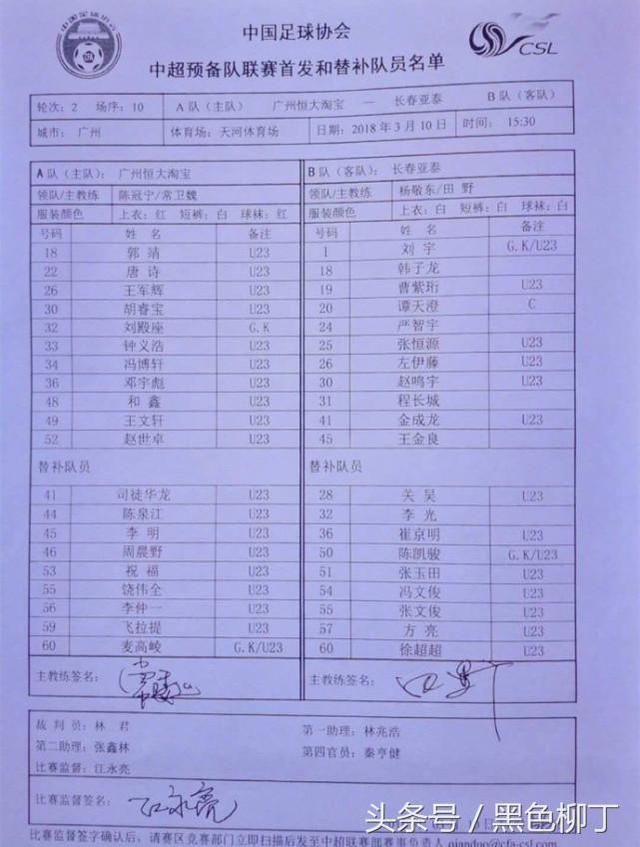 中国足球协会
CSL
中超预备队联赛首发和替补队员名单
轮次：2 场序：10 A队（主队） 广州恒大淘宝 — 长春亚泰 B队（客队）
城市：广州 体育场：天河体育场 日期：2018年3月10日 时间：15:30
A队（主队）： 广州恒大淘宝 B队（客队）： 长春亚泰
领队/主教练 陈冠宁/常卫魏 领队/主教练 杨敬东/田 野
服装颜色 上衣：红 短裤：白 球袜：红 服装颜色 上衣：白 短裤：白 球袜：白
号码 姓 名 备注 号码 姓 名 备注
18 郭 靖 U23 1 刘 宇 G.K/U23
22 唐 诗 U23 18 韩子龙
26 王军辉 U23 19 曹紫珩 U23
30 胡睿宝 U23 20 谭天澄 C
32 刘殿座 G.K 24 严智宇
33 钟义浩 U23 25 张恒源 U23
34 冯博轩 U23 26 左伊藤 U23
36 邓宇彪 U23 30 赵鸣宇 U23
48 和 鑫 U23 31 程长城
49 王文轩 U23 41 金成龙 U23
52 赵世卓 U23 45 王金良
替补队员 替补队员
41 司徒华龙 U23 28 关 昊 U23
44 陈泉江 U23 32 李 光
45 李 明 U23 36 崔京明 U23
46 周晨野 U23 50 陈凯骏 G.K/U23
53 祝 福 U23 51 张玉田 U23
55 饶伟全 U23 54 冯文俊 U23
56 李仲一 U23 55 张文俊 U23
59 飞拉提 U23 57 方 亮 U23
60 麦高崚 G.K/U23 60 徐超超 U23
主教练签名： 主教练签名：
裁判员：林 君 第一助理：林兆浩
第二助理：张鑫林 第四官员：秦亨健
比赛监督：江永亮
比赛监督签名：江永亮
头条号 / 黑色柳丁
比赛监督签字确认后，请赛区竞赛部门立即扫描后发至中超联赛部赛事负责人qianduo@cfa-csl.com